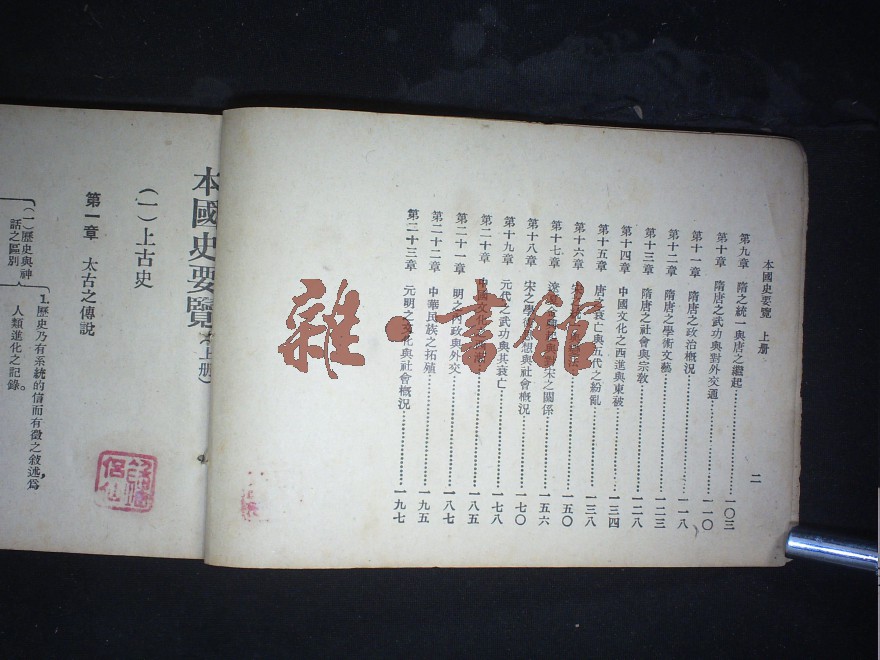 本國史要覽　上册
二
第九章　隋之統一與唐之繼起……一〇三
第十章　隋唐之武功與對外交通……一一〇
第十一章　隋唐之政治概況……一一八
第十二章　隋唐之學術文藝……一二三
第十三章　隋唐之社會與宗敎……一二八
第十四章　中國文化之西進與東被……一三四
第十五章　唐之衰亡與五代之紛亂……一三八
第十六章　……一五〇
第十七章　宋之關係……一五六
第十八章　宋之學術思想與社會概況……一七〇
第十九章　元代之武功與其衰亡……一七八
第二十章　中國文化……一八五
第二十一章　明之內政與外交……一八七
第二十二章　中華民族之拓殖……一九五
第二十三章　元明之文化與社會概況……一九七
雜·書館
本國史要覽（上册）
（一）上古史
第一章　太古之傳說
（一）歷史與神
話之區別
1.歷史乃有系統的信而有徵之敘述，爲
人類進化之記錄。